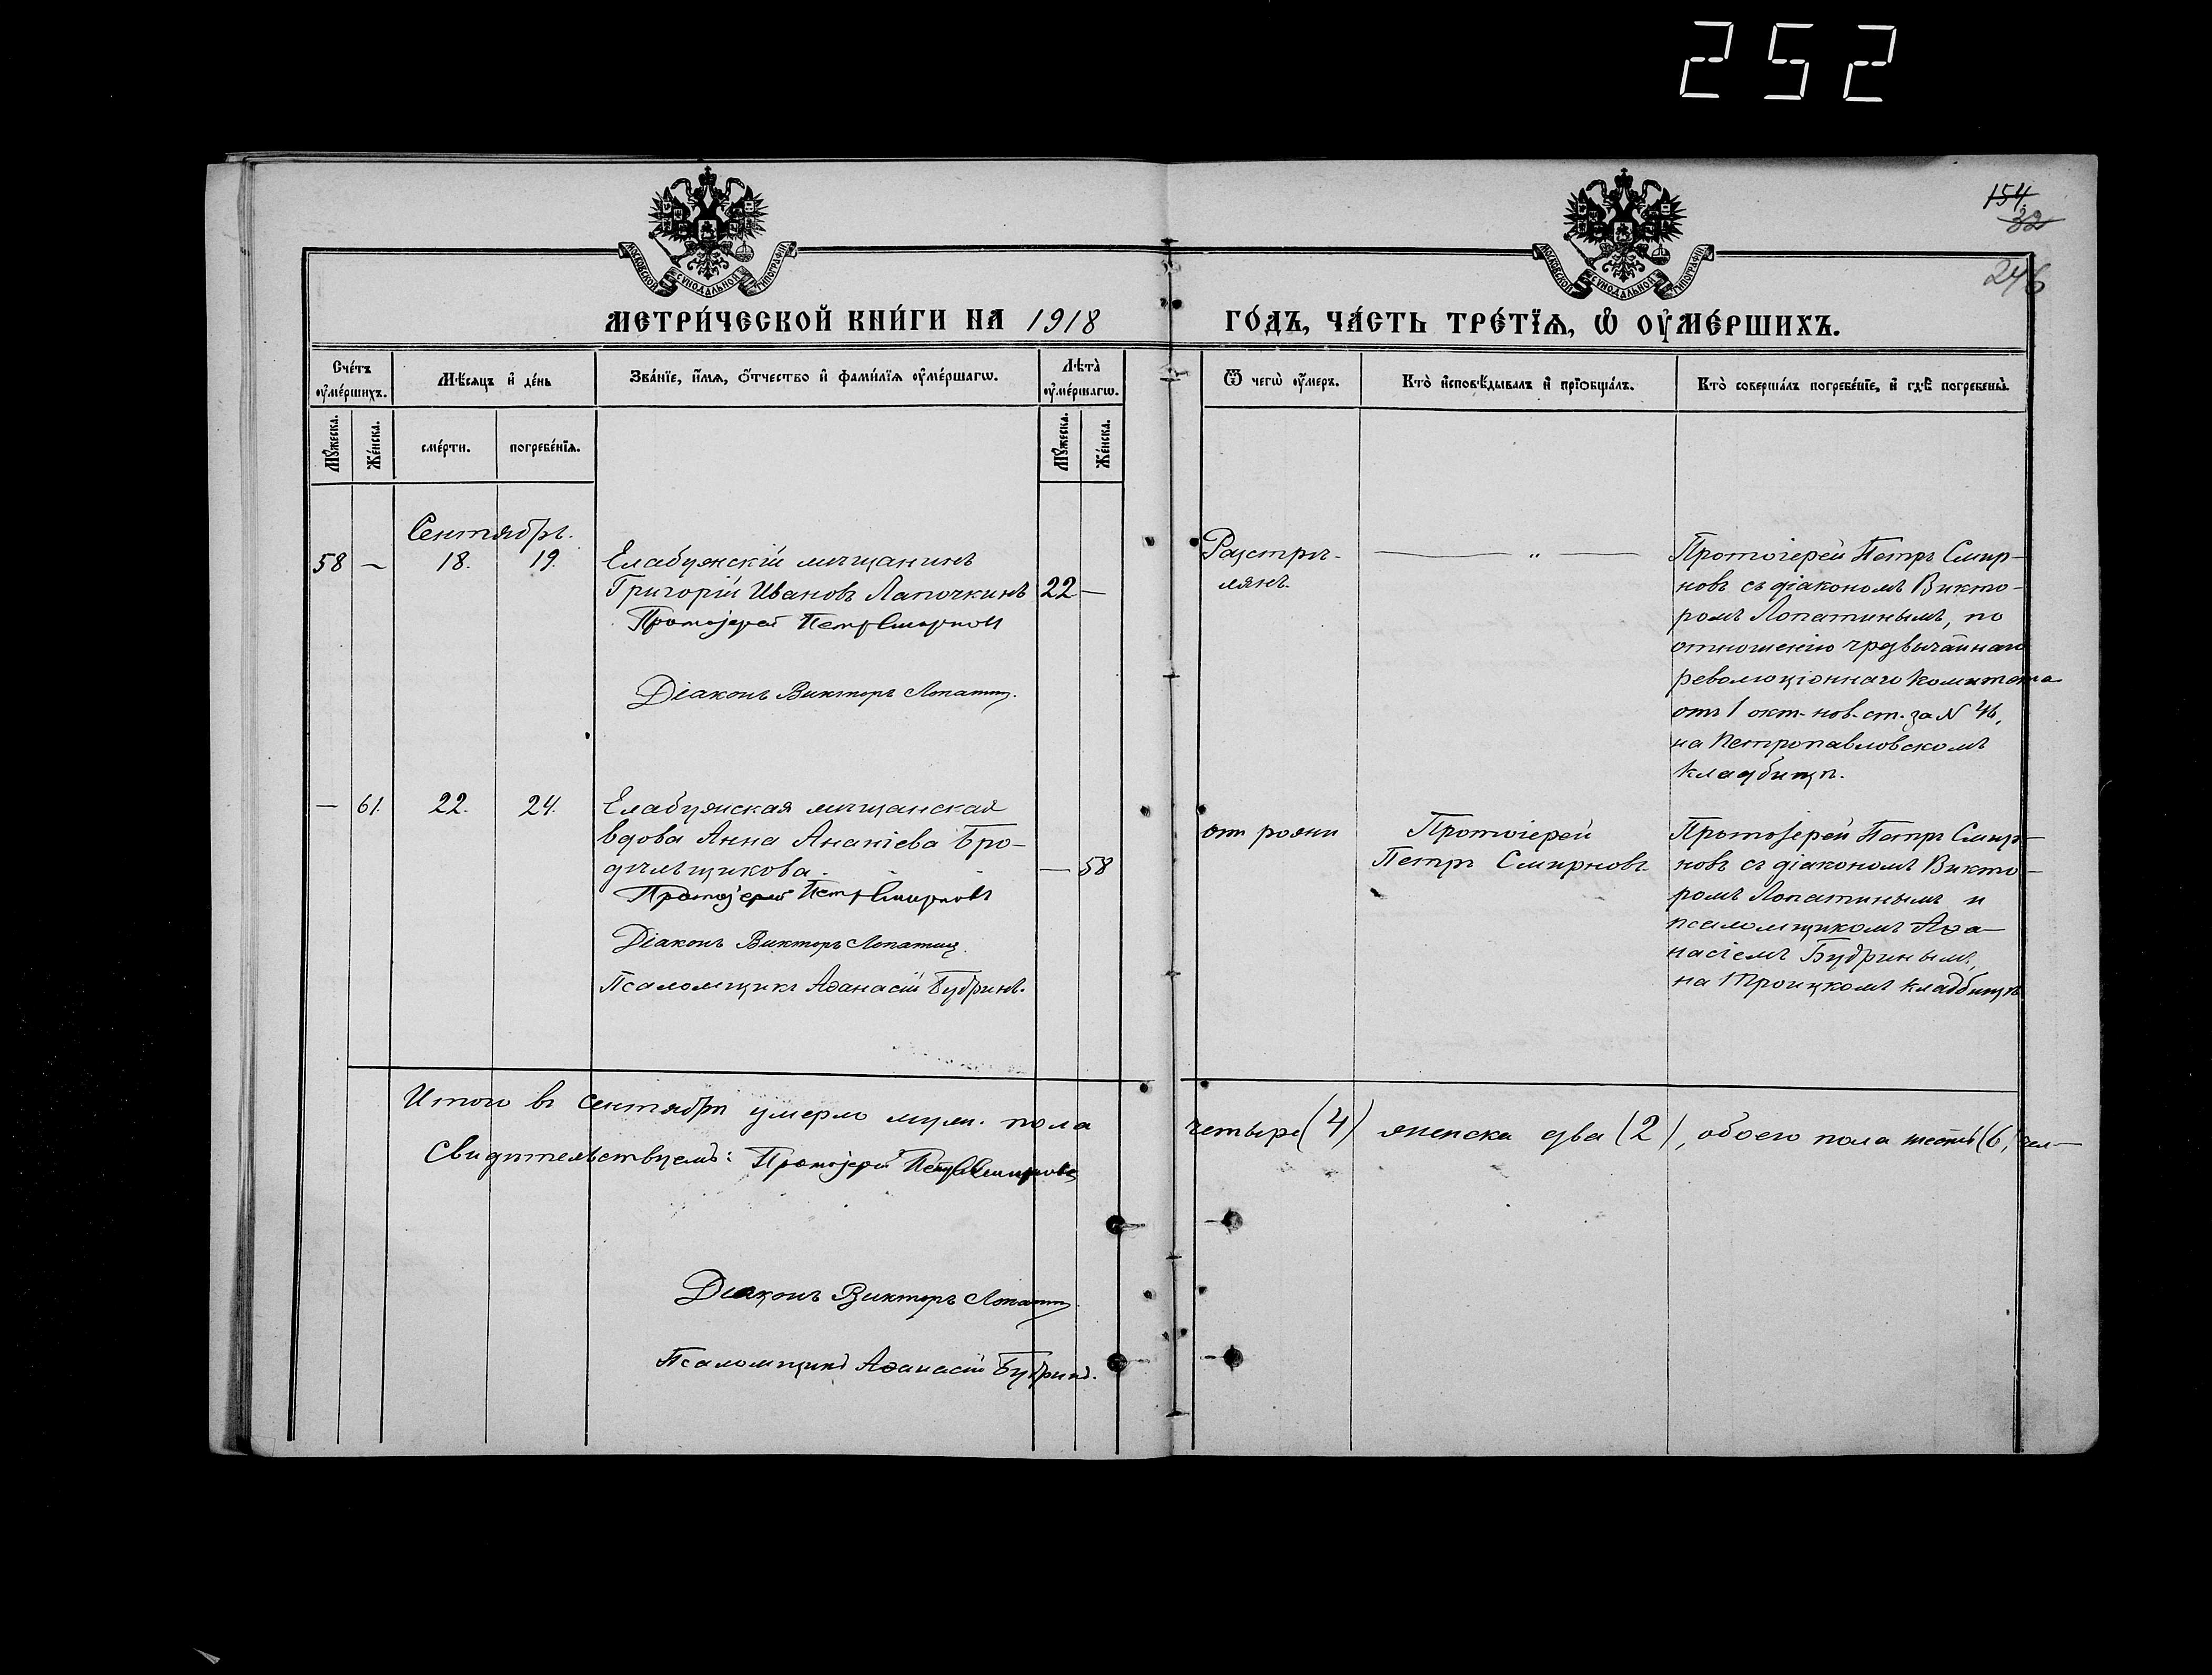 252
154
32
246
МОСКОВСКОЙ СИНОДАЛЬНОЙ ТИПОГРАФІИ
МОСКОВСКОЙ СИНОДАЛЬНОЙ ТИПОГРАФІИ
МЕТРИ́ЧЕСКОЙ КНИ́ГИ НА 1918 ГО́ДЪ, ЧА́СТЬ ТРЕ́ТЇѦ, Ѡ҆ ОУ҆МЕ́РШИХЪ.
Сче́тъ оу҆ме́ршихъ.
Мꙋ́жеска.
Же́нска.
Мѣ́сѧцъ и҆ де́нь
сме́рти.
погребе́нїѧ.
Зва́нїе, и҆́мѧ, ѻ҆́тчество и҆ фами́лїѧ оу҆ме́ршагѡ.
Лѣ́та оу҆ме́ршагѡ.
Мꙋ́жеска.
Же́нска.
Ѿ чегѡ̀ оу҆́меръ.
Кто̀ и҆сповѣ́дывалъ и҆ прїѡбща́лъ.
Кто̀ соверша́лъ погребе́нїе, и҆ гдѣ̀ погребены̀.
Сентябрь.
58 — 18. 19. Елабужскій мѣщанинъ
Григорій Ивановъ Лапочкинъ 22 —
Протоіерей Петръ Смирновъ
Діаконъ Викторъ Лопатинъ.
Разстрѣ-
лянъ.
— „ —
Протоіерей Петръ Смир-
новъ съ діакономъ Викто-
ромъ Лопатинымъ, по
отношенію чрезвычайнаго
революціоннаго комитета
отъ 1 окт. нов. ст. за N 46,
на Петропавловскомъ
кладбищѣ.
— 61. 22. 24. Елабужская мѣщанская
вдова Анна Ананіева Бро-
дѣльщикова. — 58
Протоіерей Петръ Смирновъ
Діаконъ Викторъ Лопатинъ.
Псаломщикъ Аѳанасій Будринъ.
отъ рожи
Протоіерей
Петръ Смирновъ.
Протоіерей Петръ Смир-
новъ съ діакономъ Викто-
ромъ Лопатинымъ и
псаломщикомъ Аѳа-
насіемъ Будринымъ,
на Троицкомъ кладбищѣ
Итого въ сентябрѣ умерло муж. пола четыре (4) женска два (2), обоего пола шесть (6) чел—
Свидѣтельствуемъ: Протоіерей Петръ Смирновъ
Діаконъ Викторъ Лопатинъ.
Псаломщикъ Аѳанасій Будринъ.